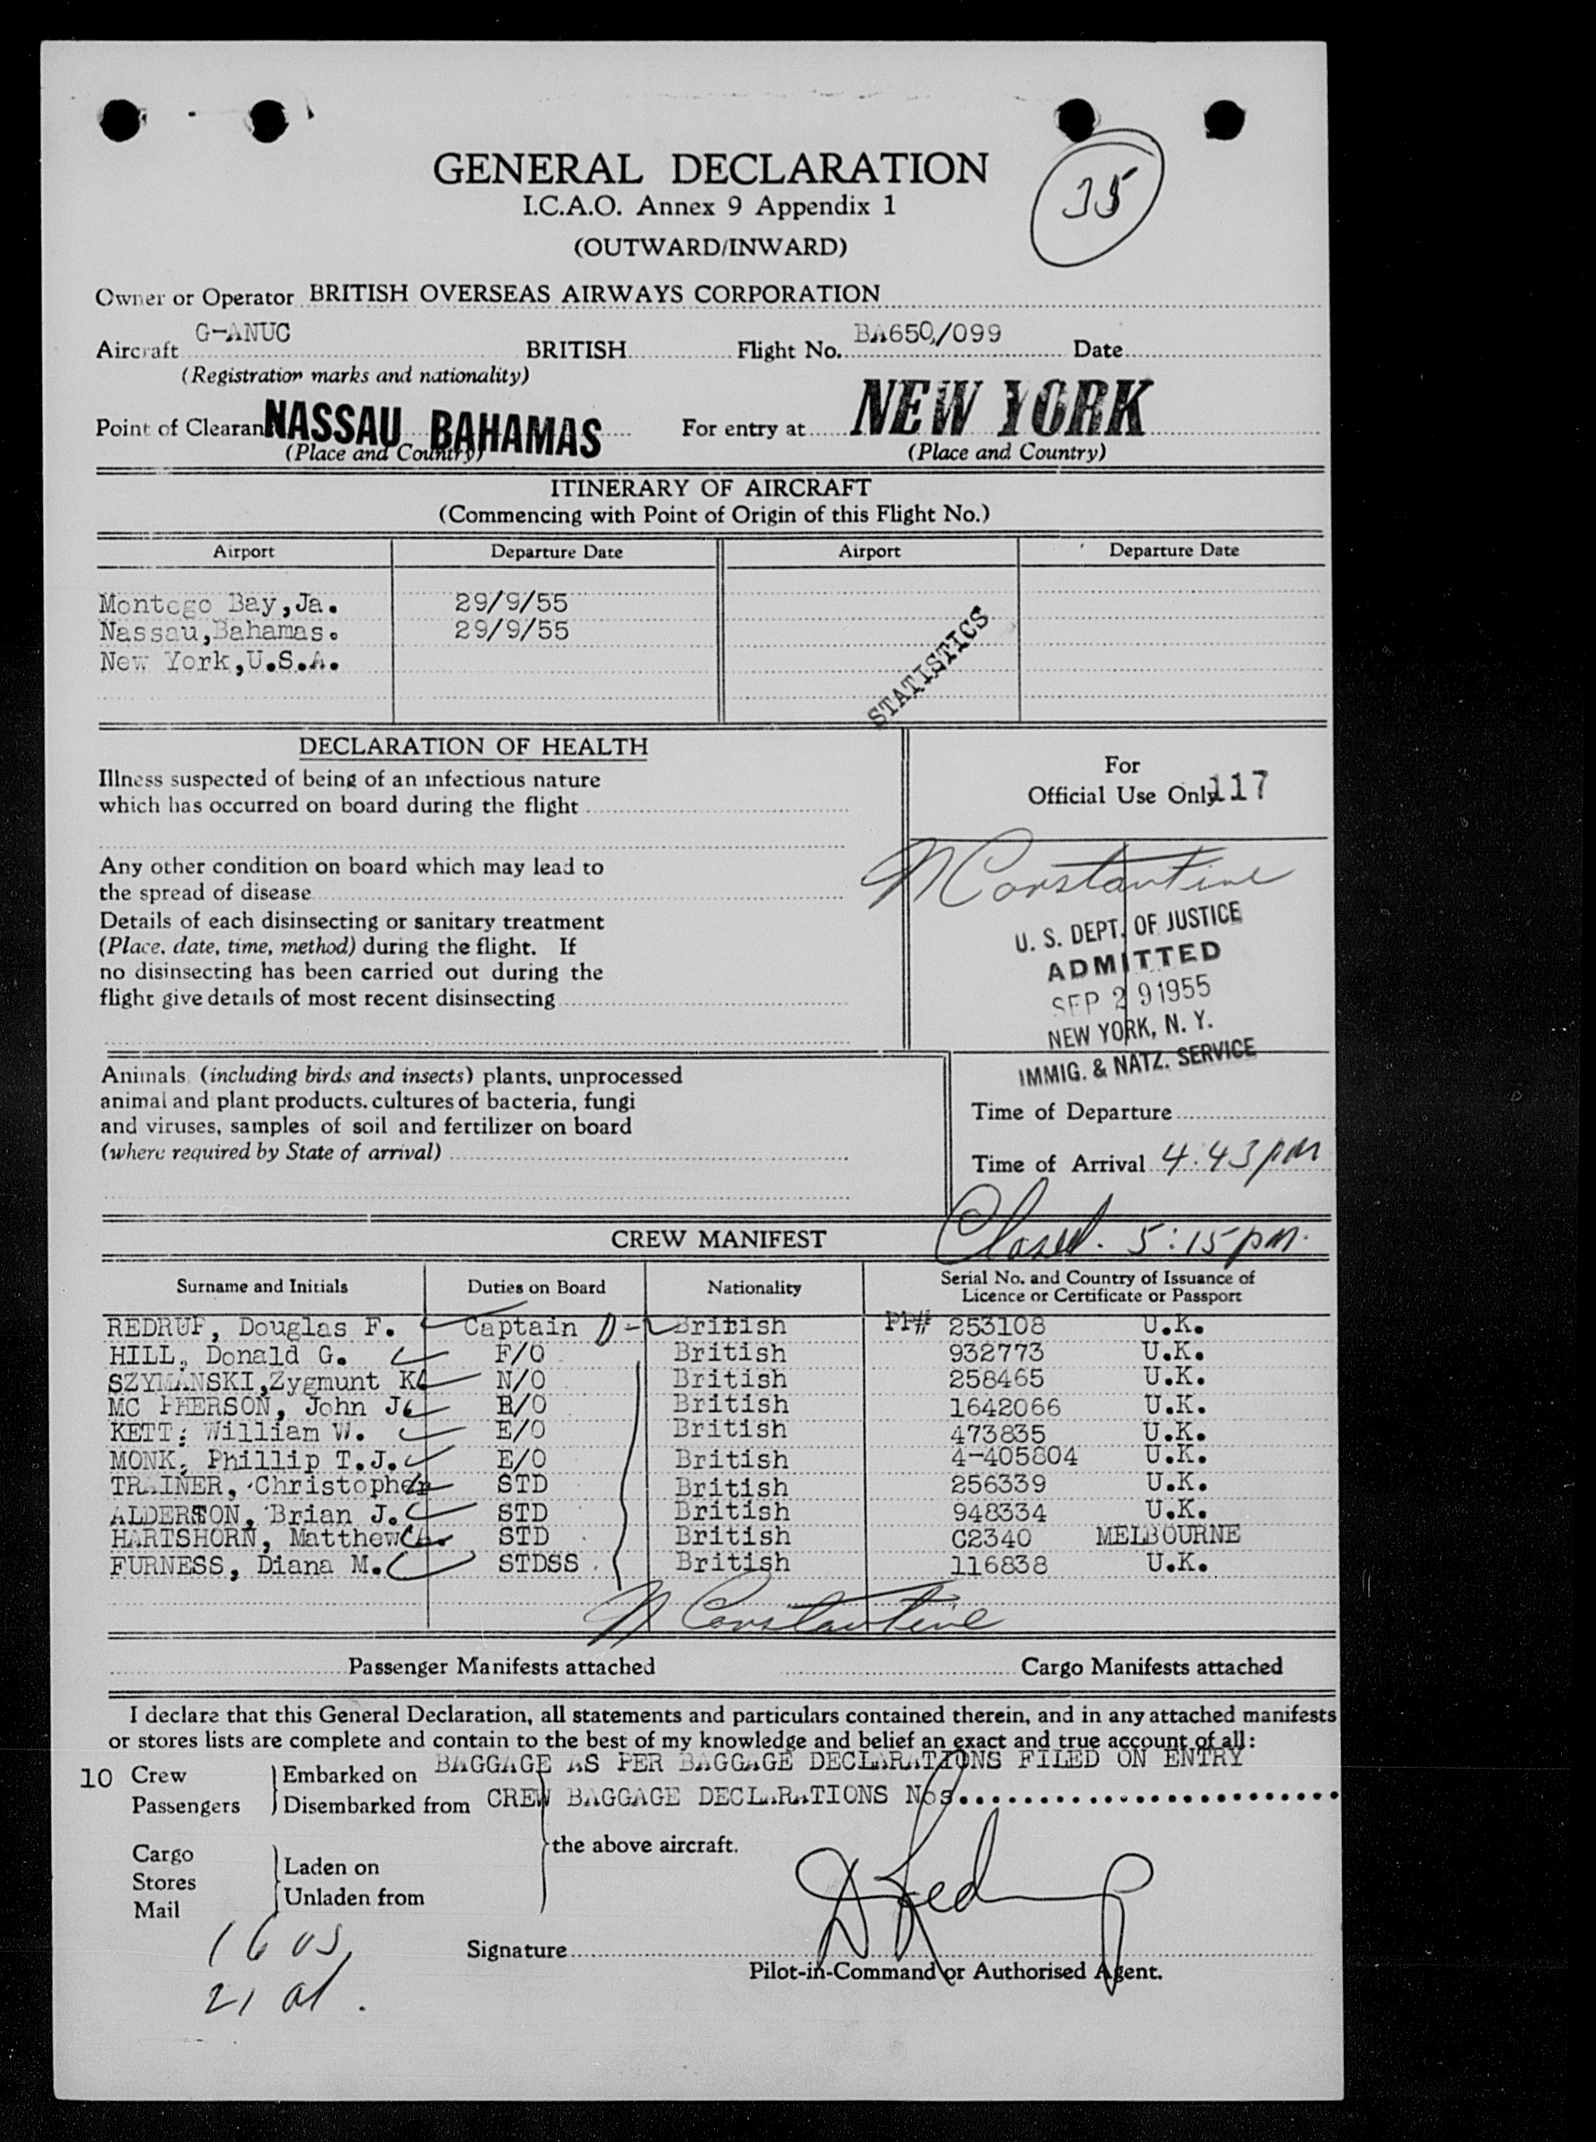 35
GENERAL DECLARATION
I.C.A.O. Annex 9 Appendix 1
(OUTWARD/INWARD)
Owner or Operator BRITISH OVERSEAS AIRWAYS CORPORATION
Aircraft G-ANUC BRITISH Flight No. BA650/099 Date
(Registration marks and nationality)
Point of Clearan NASSAU BAHAMAS For entry at NEW YORK
(Place and Country) (Place and Country)
ITINERARY OF AIRCRAFT
(Commencing with Point of Origin of this Flight No.)
Airport Departure Date Airport Departure Date
Montego Bay,Ja. 29/9/55
Nassau,Bahamas. 29/9/55
New York,U.S.A.
STATISTICS
DECLARATION OF HEALTH
Illness suspected of being of an infectious nature
which has occurred on board during the flight
Any other condition on board which may lead to
the spread of disease
Details of each disinsecting or sanitary treatment
(Place, date, time, method) during the flight. If
no disinsecting has been carried out during the
flight give details of most recent disinsecting
For
Official Use Only 117
N Constantine
U. S. DEPT. OF JUSTICE
ADMITTED
SEP 29 1955
NEW YORK, N. Y.
IMMIG. & NATZ. SERVICE
Animals (including birds and insects) plants, unprocessed
animal and plant products, cultures of bacteria, fungi
and viruses, samples of soil and fertilizer on board
(where required by State of arrival)
Time of Departure
Time of Arrival 4.43 pm
Closed. 5:15 pm.
CREW MANIFEST
Surname and Initials Duties on Board Nationality Serial No. and Country of Issuance of
Licence or Certificate or Passport
REDRUP, Douglas F. Captain British PP# 253108 U.K.
HILL, Donald G. F/O British 932773 U.K.
SZYMANSKI,Zygmunt K. N/O British 258465 U.K.
MC PHERSON, John J. R/O British 1642066 U.K.
KETT, William W. E/O British 473835 U.K.
MONK, Phillip T.J. E/O British 4-405804 U.K.
TRAINER, Christopher STD British 256339 U.K.
ALDERTON, Brian J. STD British 948334 U.K.
HARTSHORN, Matthew A. STD British C2340 MELBOURNE
FURNESS, Diana M. STDSS British 116838 U.K.
N Constantine
Passenger Manifests attached Cargo Manifests attached
I declare that this General Declaration, all statements and particulars contained therein, and in any attached manifests
or stores lists are complete and contain to the best of my knowledge and belief an exact and true account of all:
BAGGAGE AS PER BAGGAGE DECLARATIONS FILED ON ENTRY
10 Crew Embarked on
Passengers Disembarked from CREW BAGGAGE DECLARATIONS Nos.
the above aircraft.
Cargo
Stores Laden on
Mail Unladen from
16 us,
21 al.
D F Redrup
Signature
Pilot-in-Command or Authorised Agent.